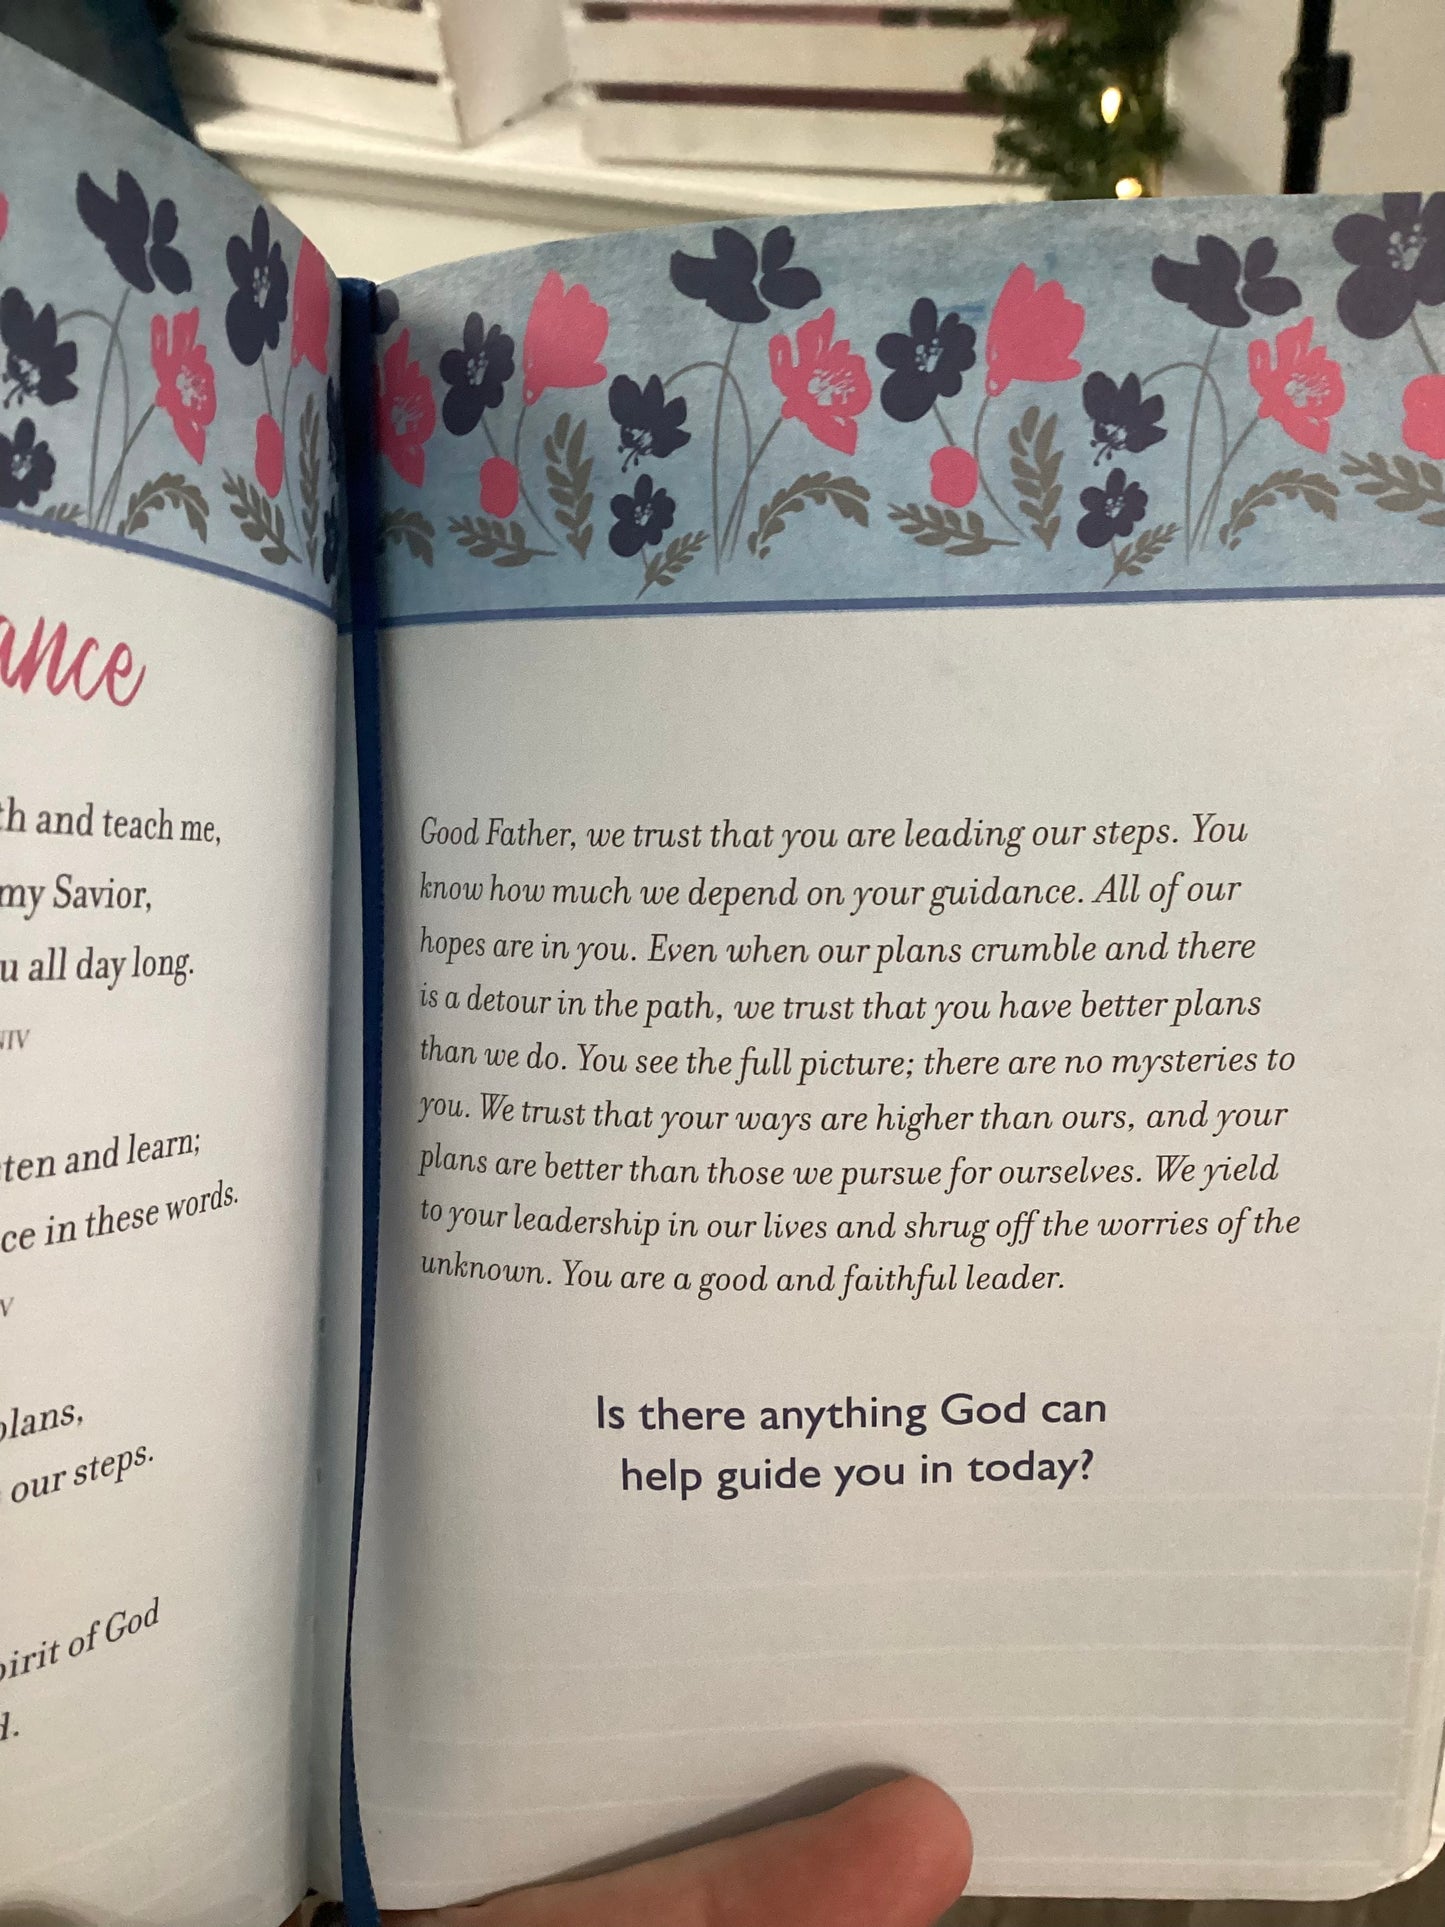 th and teach me,
my Savior,
all day long.
NIV
and learn;
in these words.
plans,
our steps.
of God
Good Father, we trust that you are leading our steps. You
know how much we depend on your guidance. All of our
hopes are in you. Even when our plans crumble and there
is a detour in the path, we trust that you have better plans
than we do. You see the full picture; there are no mysteries to
you. We trust that your ways are higher than ours, and your
plans are better than those we pursue for ourselves. We yield
to your leadership in our lives and shrug off the worries of the
unknown. You are a good and faithful leader.
Is there anything God can
help guide you in today?